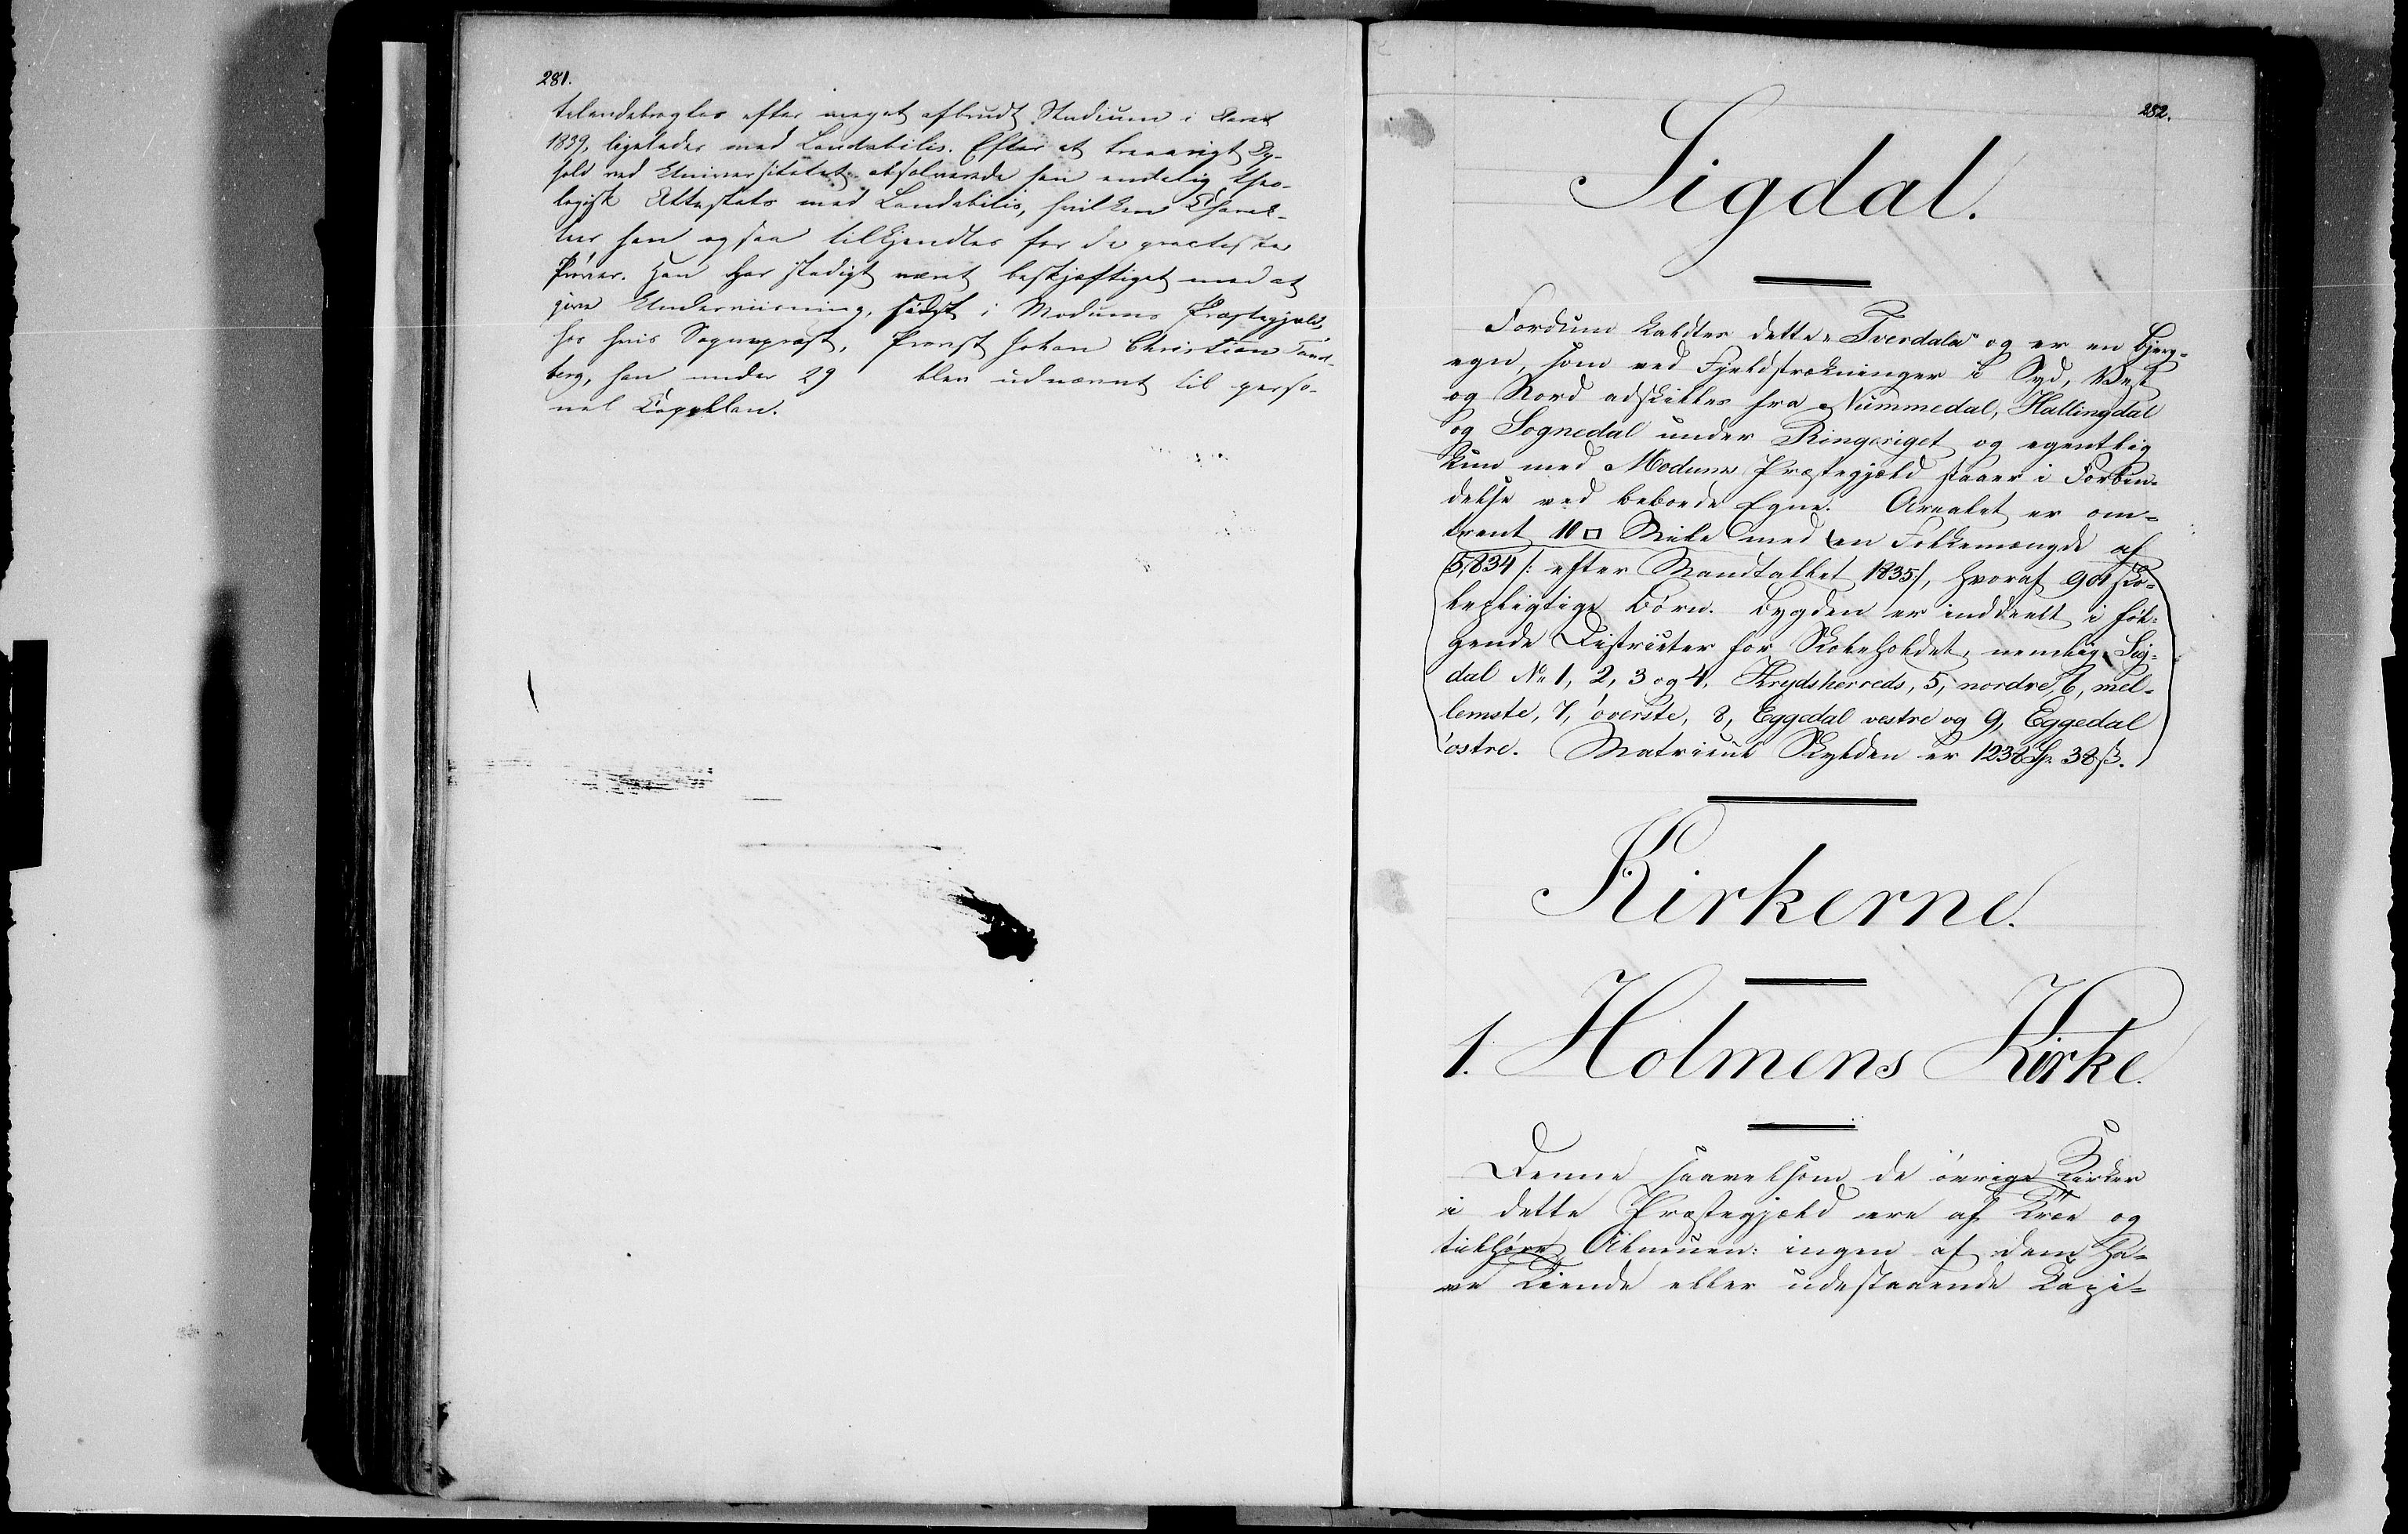 281.
tilendebragtes efter meget afbrudt Studium i Aaret
1839, ligeledes med Laudabilis. Efter et treaarigt Op-
hold ved Universitetet absolverede han endelig theo-
logisk Attestats med Laudabilis, hvilken Charak-
teer han ogsaa tilkjendtes for de practiske
Prøver. Han har stadigt været beskjæftiget med at
give Underviisning, sidst i Modums Præstegjæld,
hos hvis Sognepræst, Provst Johan Christian Tand-
berg, han under 29 blev udnævnt til perso-
nel Capellan.
282.
Sigdal.
Fordum kaldtes dette "Tverdale" og er en Bjerg-
egn, som ved Fjeldstrækninger i Syd, Vest
og Nord adskilles fra Nummedal, Hallingdal
og Sognedal under Ringeriget og egentlig
kun med Modums Præstegjæld staaer i Forbin-
delse ved beboede Egne. Arealet er om-
trent 10 □ Mile med en Folkemængde af
5,834 /: efter Mandtallet 1835 :/, hvoraf 901 sko-
lepligtige Børn. Bygden er inddeelt i føl-
gende Districter for Skoleholdet, nemlig Sig-
dal No 1, 2, 3 og 4. Krydsherreds, 5, nordre, 6, mel-
lemste, 7, øverste, 8, Eggedal vestre og 9, Eggedal
østre. Matricul Skylden er 1238 Sp. 38 ß.
Kirkerne.
1. Holmens Kirke.
Denne saavelsom de øvrige Kirker
i dette Præstegjæld ere af Træ og
tilhøre Almuen: ingen af dem ha-
ve Tiende eller udestaaende Capi-